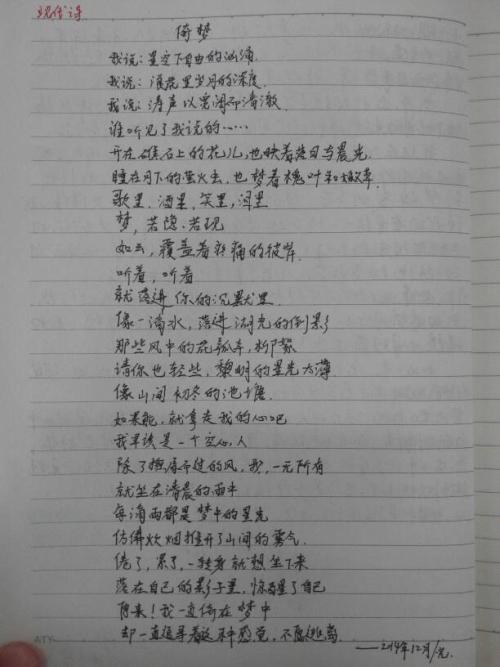 现代诗
倚梦
我说：星空下自由的汹涌
我说：浪花里岁月的深度
我说：涛声以雾闻不清澈
谁听见了我说的……
开在礁石上的花儿，也映着落日与晨光
睡在月下的萤火虫，也梦着槐叶和
歌里，酒里，笑里，泪里
梦，若隐、若现
如云，覆盖着疼痛的彼岸
听着，听着
就落进你的沉默里
像一滴水，落进湖光的倒影
那些风中的花瓢，柳絮
请你也轻些，黎明的星光太薄
像山间初冬的池塘
如果能，就拿走我的心吧
我早该是一个空心人
除了拥有的风，我，一无所有
就坐在清晨的雨中
每滴雨都是梦中的星光
仿佛炊烟推开了山间的雾气
倦了，累了，一转身就想坐下来
落在自己的影子里，惊醒了自己
原来！我一直倚在梦中
却一直追寻着这种感觉，不愿逃离
——2014年12月/
ATY